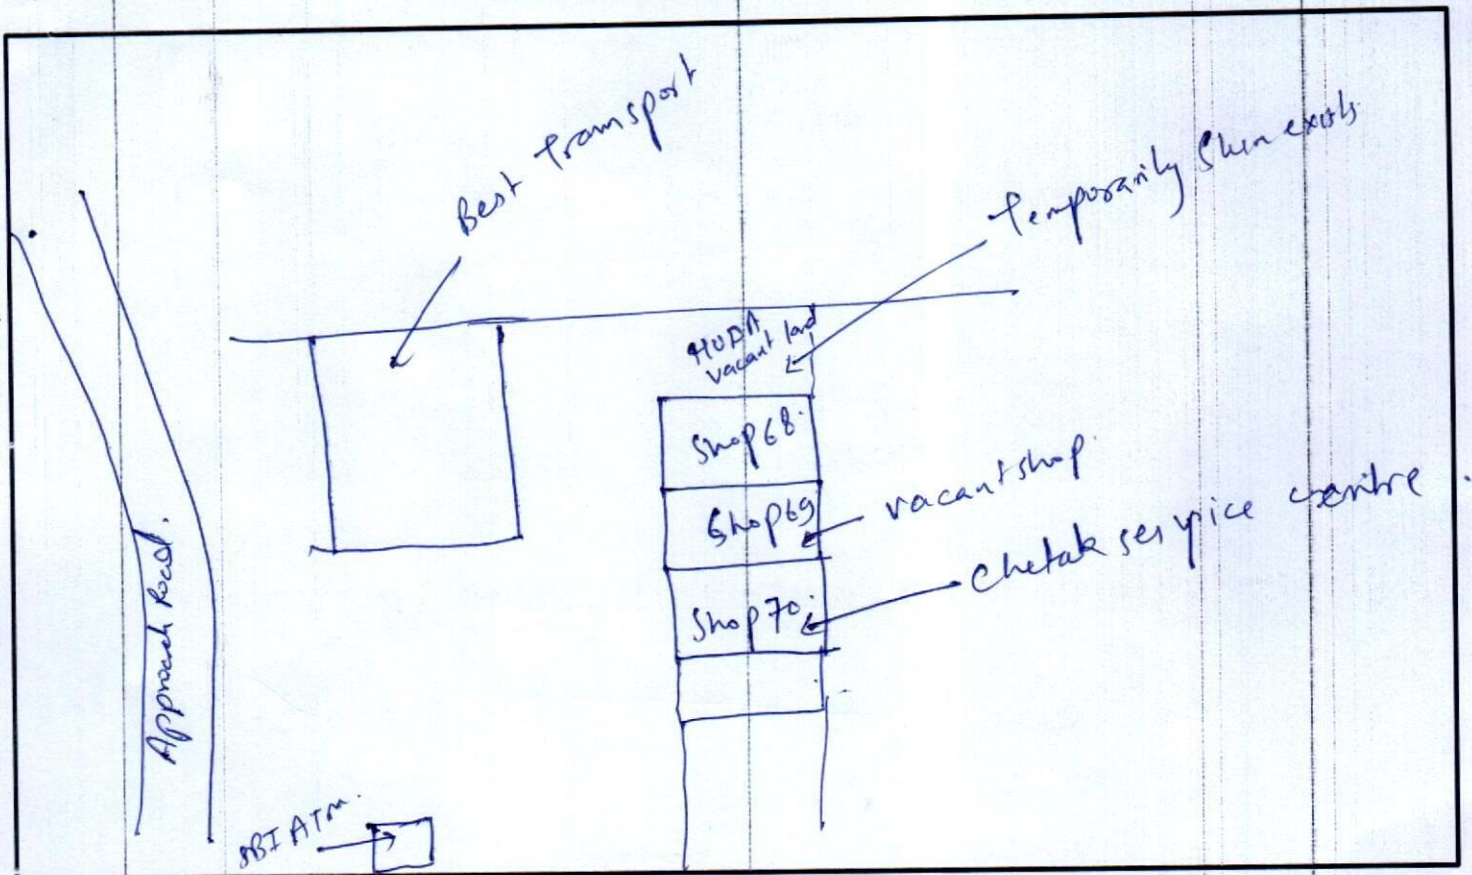 Best Transport
Temporarily exists
HUDA
vacant land
Shop 68.
Shop 69
vacant shop.
Chetak service centre.
Shop 70.
Approach Road.
SBI ATM.